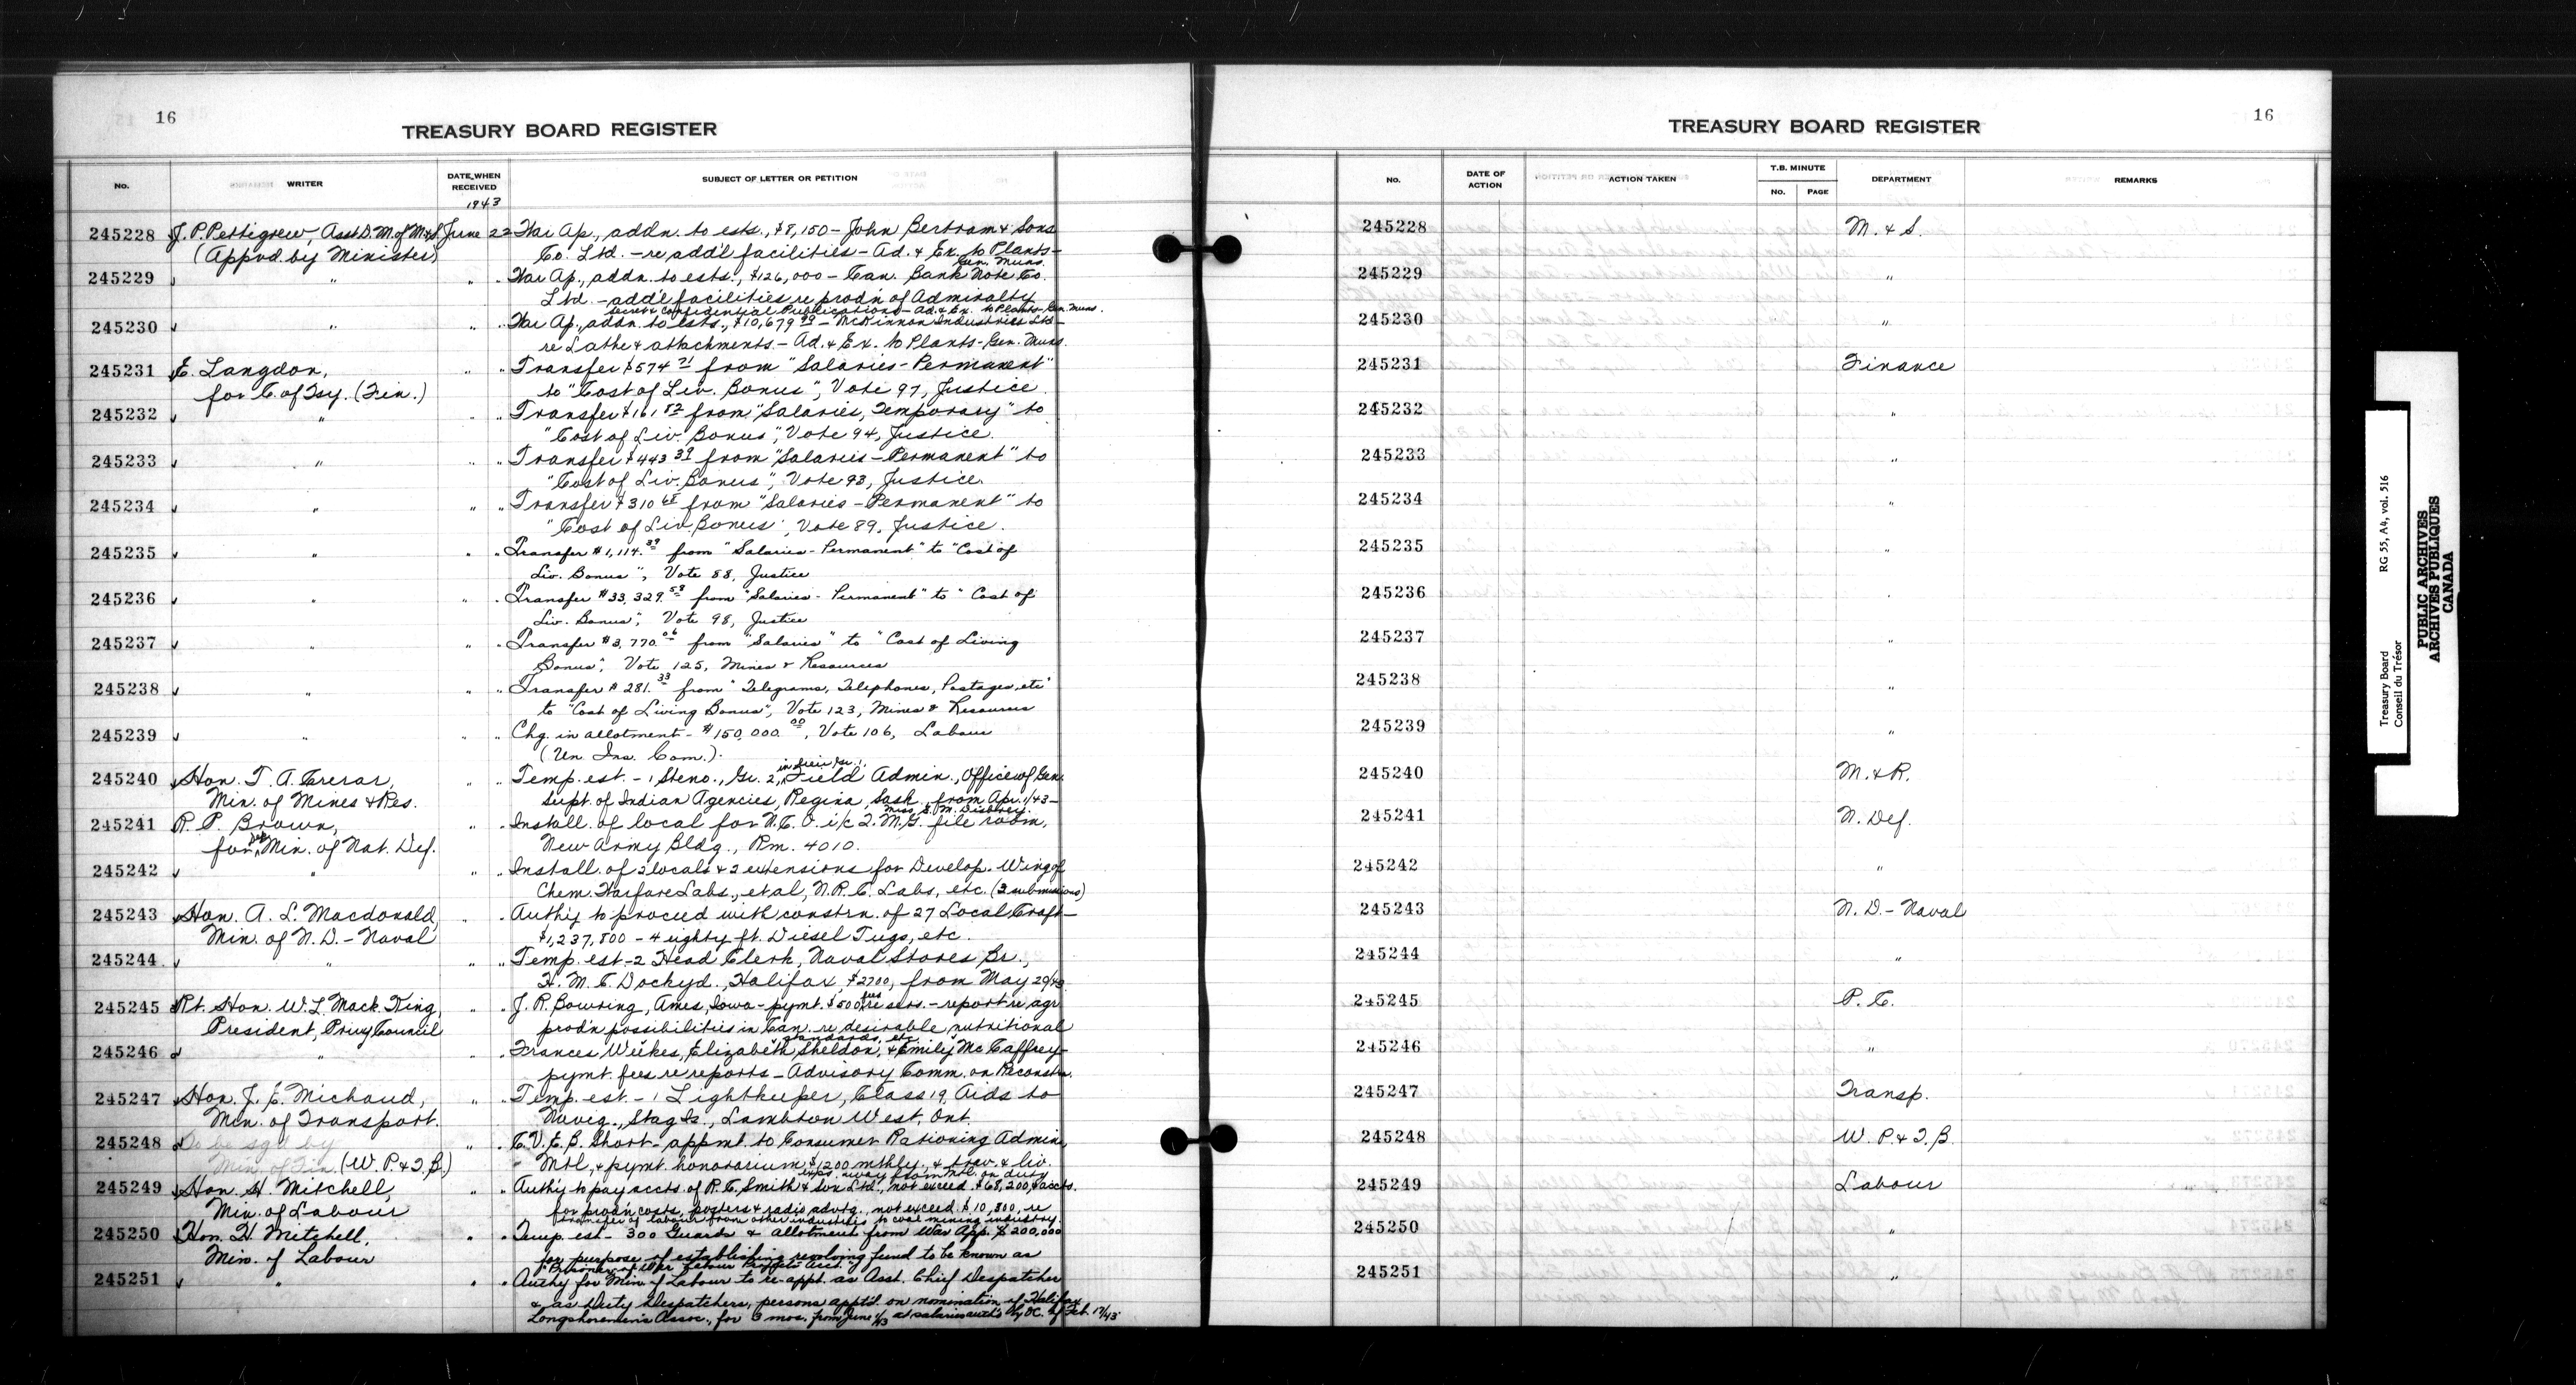 16
TREASURY BOARD REGISTER
No.
WRITER
DATE WHEN RECEIVED
SUBJECT OF LETTER OR PETITION
1943
245228 J. P. Pettigrew, Asst. D. M. of M&S. June 22 War Ap., addn. to ests., $8,150 - John Bertram & Sons
(Appvd. by Minister) Co. Ltd. - re add'l facilities - Ad. & Ex. to Plants -
Gen. Muns.
245229 " " " War Ap., addn. to ests., $126,000 - Can. Bank Note Co.
Ltd. - add'l facilities re prod'n of Admiralty
Secret & Confidential Publications - Ad. & Ex. to Plants - Gen. Muns.
245230 " " " War Ap., addn. to ests., $10,679 - McKinnon Industries Ltd -
re Lathe & attachments - Ad. & Ex. to Plants - Gen. Muns.
245231 E. Langdon, " " Transfer $574 71 from "Salaries - Permanent"
for C. of Tsy. (Fin.) to "Cost of Liv. Bonus", Vote 97, Justice
245232 " " " Transfer $161 82 from "Salaries, Temporary" to
"Cost of Liv. Bonus", Vote 94, Justice.
245233 " " " Transfer $443 39 from "Salaries - Permanent" to
"Cost of Liv. Bonus", Vote 93, Justice.
245234 " " " Transfer $310 65 from "Salaries - Permanent" to
"Cost of Liv. Bonus", Vote 89, Justice.
245235 " " " Transfer $1,114.39 from "Salaries - Permanent" to "Cost of
Liv. Bonus", Vote 88, Justice
245236 " " " Transfer $33,329.59 from "Salaries - Permanent" to "Cost of
Liv. Bonus", Vote 98, Justice
245237 " " " Transfer $3,770.06 from "Salaries" to "Cost of Living
Bonus", Vote 125, Mines & Resources
245238 " " " Transfer $281.33 from "Telegrams, Telephones, Postages, etc"
to "Cost of Living Bonus", Vote 123, Mines & Resources
245239 " " " Chg. in allotment - $150,000.00, Vote 106, Labour
(Un. Ins. Com.).
in lieu Gr. 1,
245240 Hon. T. A. Crerar, " " Temp. est. - 1 Steno., Gr. 2, Field Admin., Office of Gen.
Min. of Mines & Res. Supt. of Indian Agencies, Regina, Sask. from Apr. 1/43 -
245241 R. P. Brown, " " Install. of local for N.C.O. i/c Q.M.G. file room,
for Dep. Min. of Nat. Def. New Army Bldg., Rm. 4010.
245242 " " " Install. of 2 locals & 2 extensions for Develop. Wing of
Chem. Warfare Labs., et al, N.R.C. Labs, etc. (2 submissions)
245243 Hon. A. L. Macdonald, " " Auth'y to proceed with constrn. of 27 Local Craft -
Min. of N. D. - Naval $1,237,800 - 4 eighty ft. Diesel Tugs, etc.
245244 " " " Temp. est - 2 Head Clerk, Naval Stores Br.,
H. M. C. Dockyd., Halifax, $2700, from May 29/43.
245245 Rt. Hon. W. L. Mack. King, " " J. R. Bowring, Ames, Iowa - pymt. $500 fees re servs. - report re agr
President, Privy Council prod'n possibilities in Can. re desirable nutritional
standards, etc.
245246 " " " Frances Weekes, Elizabeth Sheldon, & Emily McCaffrey -
pymt. fees re reports - Advisory Comm. on Reconstn.
245247 Hon. J. E. Michaud, " " Temp. est - 1 Lightkeeper, Class 19, Aids to
Min. of Transport. Navig., Stag Is., Lambton West, Ont.
245248 To be sgd by " " C. V. E. B. Short - appmt. to Consumer Rationing Admin.
Min. of Fin. (W. P. & T. B.) Mtl., & pymt. honorarium $1200 mthly., & trav. & liv.
exps. away from Mtl. on duty
245249 Hon. H. Mitchell, " " Auth'y to pay accts. of R. C. Smith & Son Ltd., not exceed. $68,200, & accts.
Min. of Labour for prod'n costs, posters & radio advtg., not exceed. $10,800, re
transfer of labour from other industries to coal mining industry.
245250 Hon. H. Mitchell, " " Temp. est - 300 Guards & allotment from War App. $200,000
Min. of Labour for purpose of establishing revolving fund to be known as
"Prisoner of War Labour Projects Acct."
245251 " " " Authy for Min. of Labour to re-appt. as Asst. Chief Despatcher
& as Duty Despatchers, persons appt'd. on nomination of Halifax
Longshoremen's Assoc., for 3 mos. from June 1/43 at salaries auth'd by O.C. of Feb. 17/43
16
TREASURY BOARD REGISTER
No.
DATE OF ACTION
ACTION TAKEN
T.B. MINUTE
No.
PAGE
DEPARTMENT
REMARKS
245228 M. & S.
245229 "
245230 "
245231 Finance
245232 "
245233 "
245234 "
245235 "
245236 "
245237 "
245238 "
245239 "
245240 M. & R.
245241 N. Def.
245242 "
245243 N. D. - Naval
245244 "
245245 P. C.
245246 "
245247 Transp.
245248 W. P. & T. B.
245249 Labour
245250 "
245251 "
Treasury Board RG 55, A4, vol. 516
Conseil du Trésor
PUBLIC ARCHIVES
ARCHIVES PUBLIQUES
CANADA